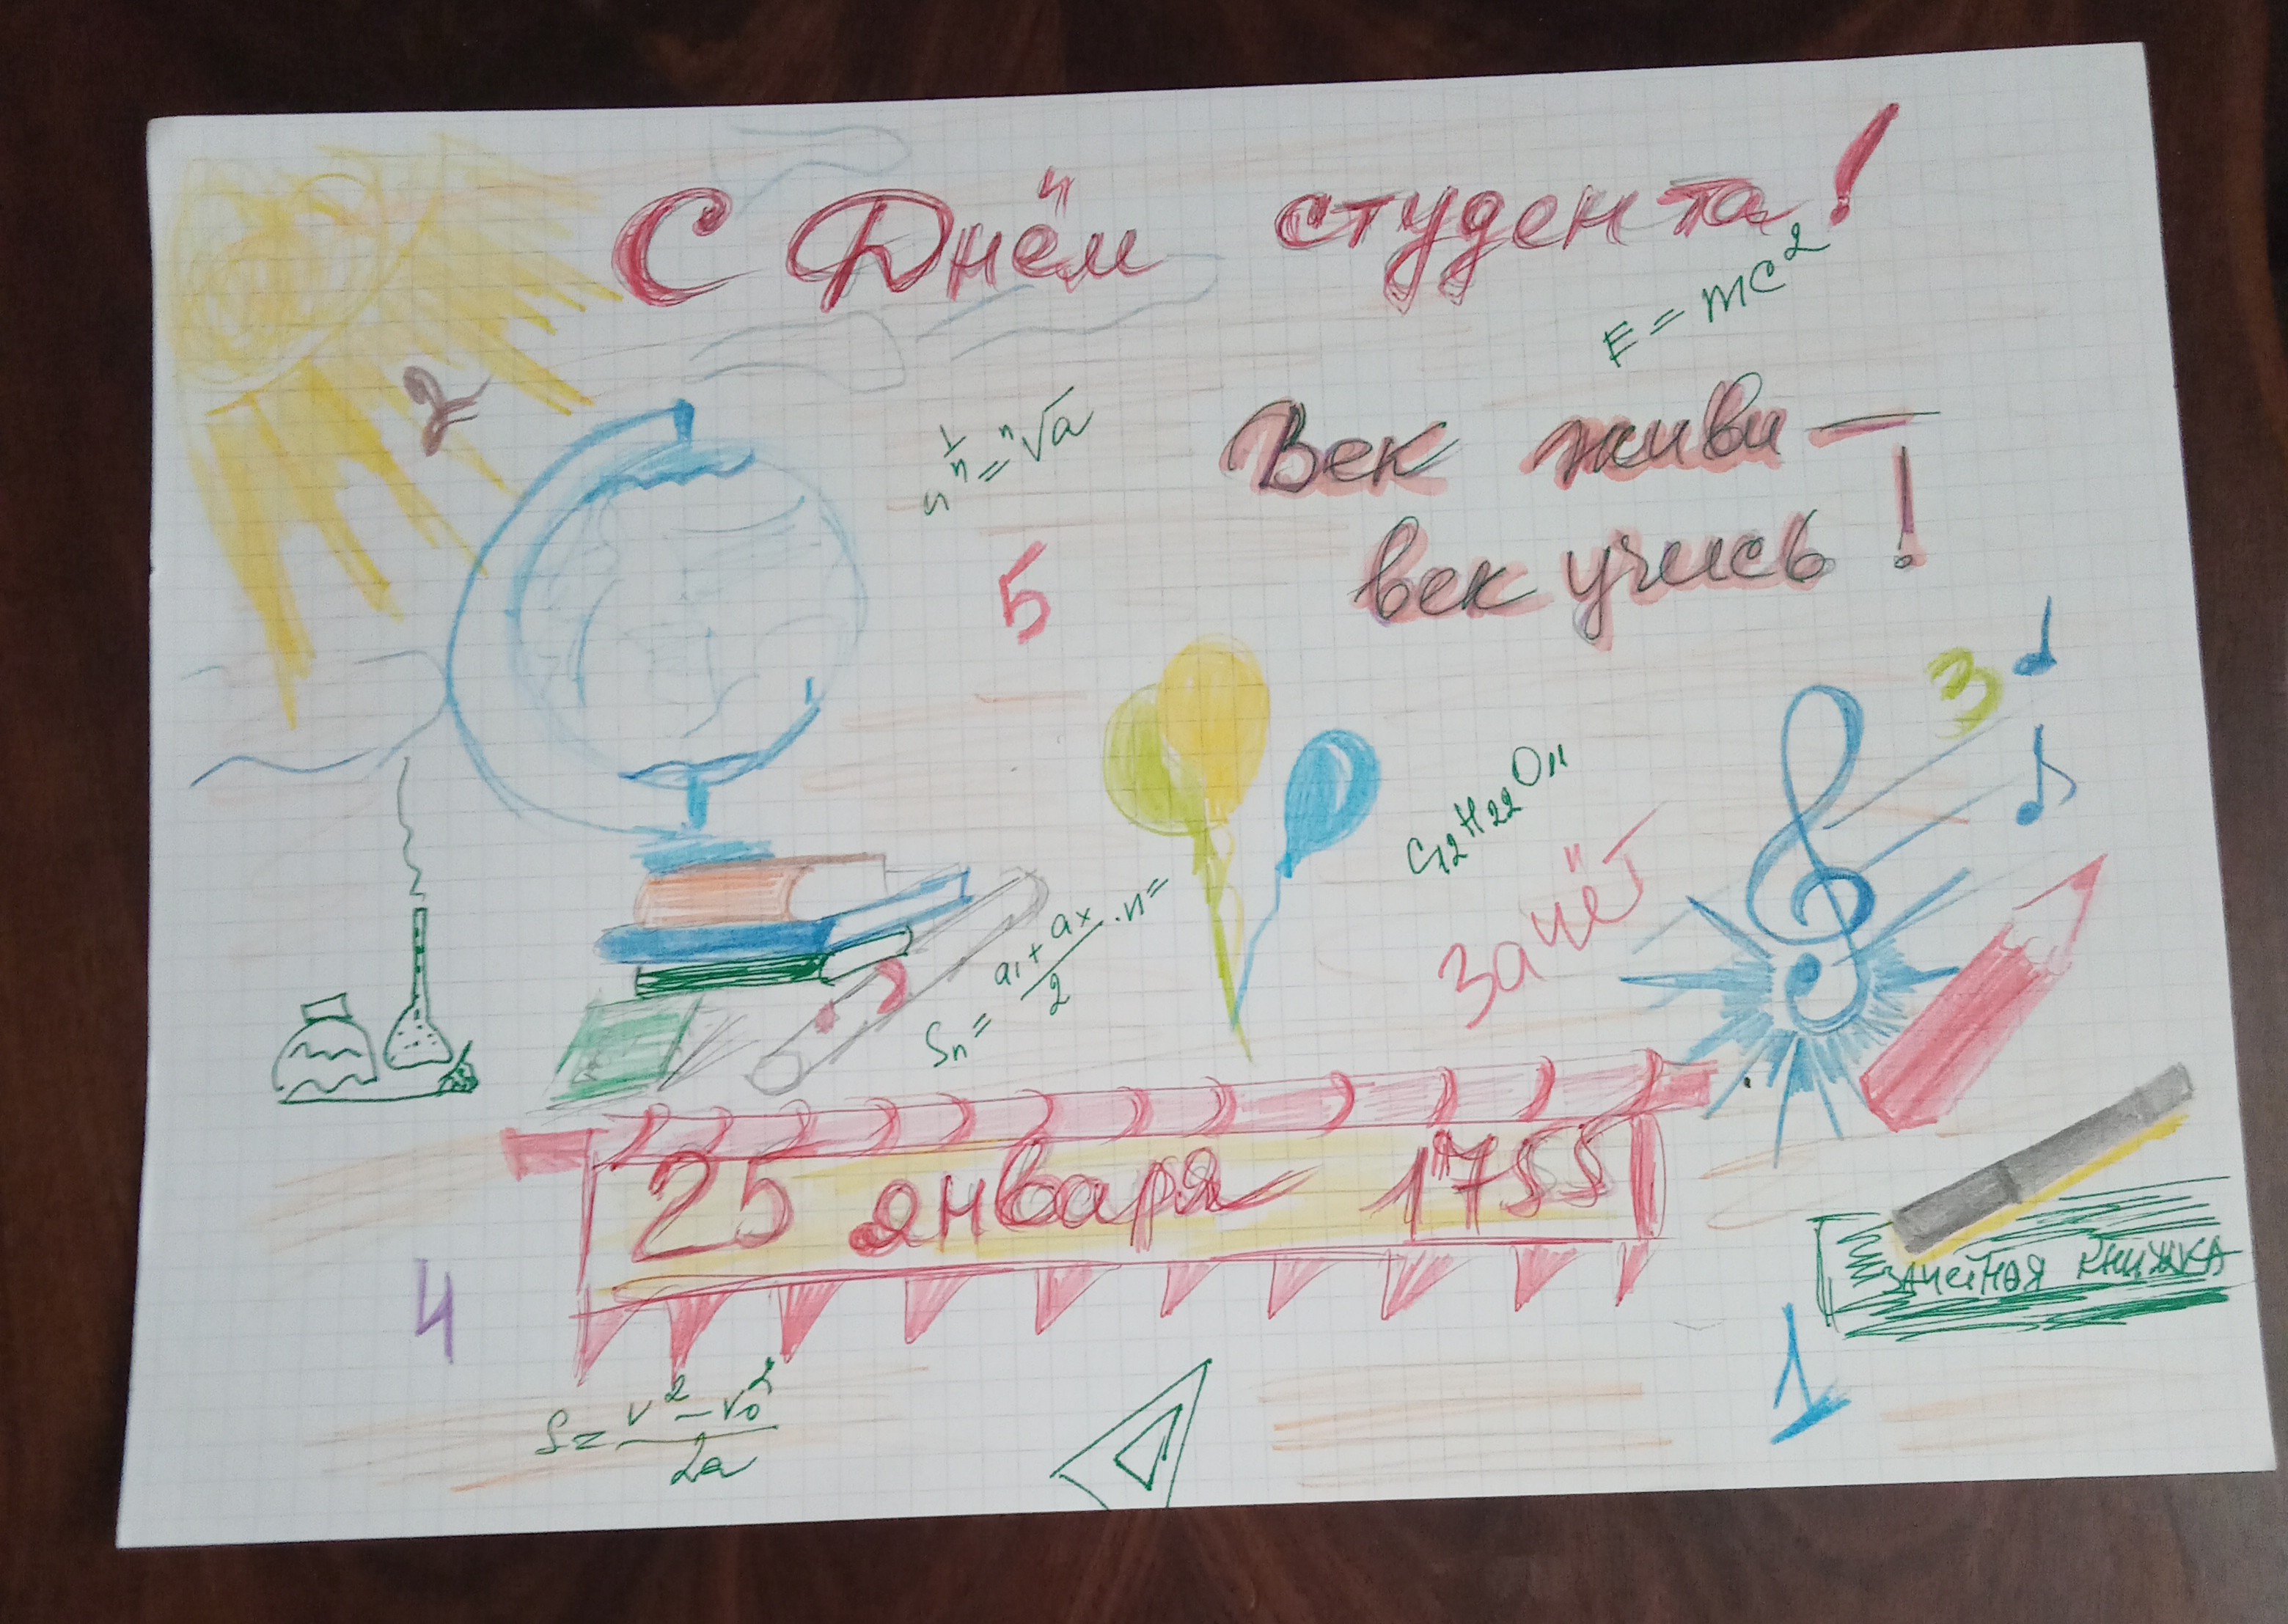 С Днём студента!
E = mc²
2
a^(1/n) = ⁿ√a
Век живи —
век учись!
5
3
C₁₂H₂₂O₁₁
зачёт
Sₙ = (a₁ + aₓ)/2 · n =
25 января 1755
зачетная книжка
4
1
S = (v² – v₀²)/2a